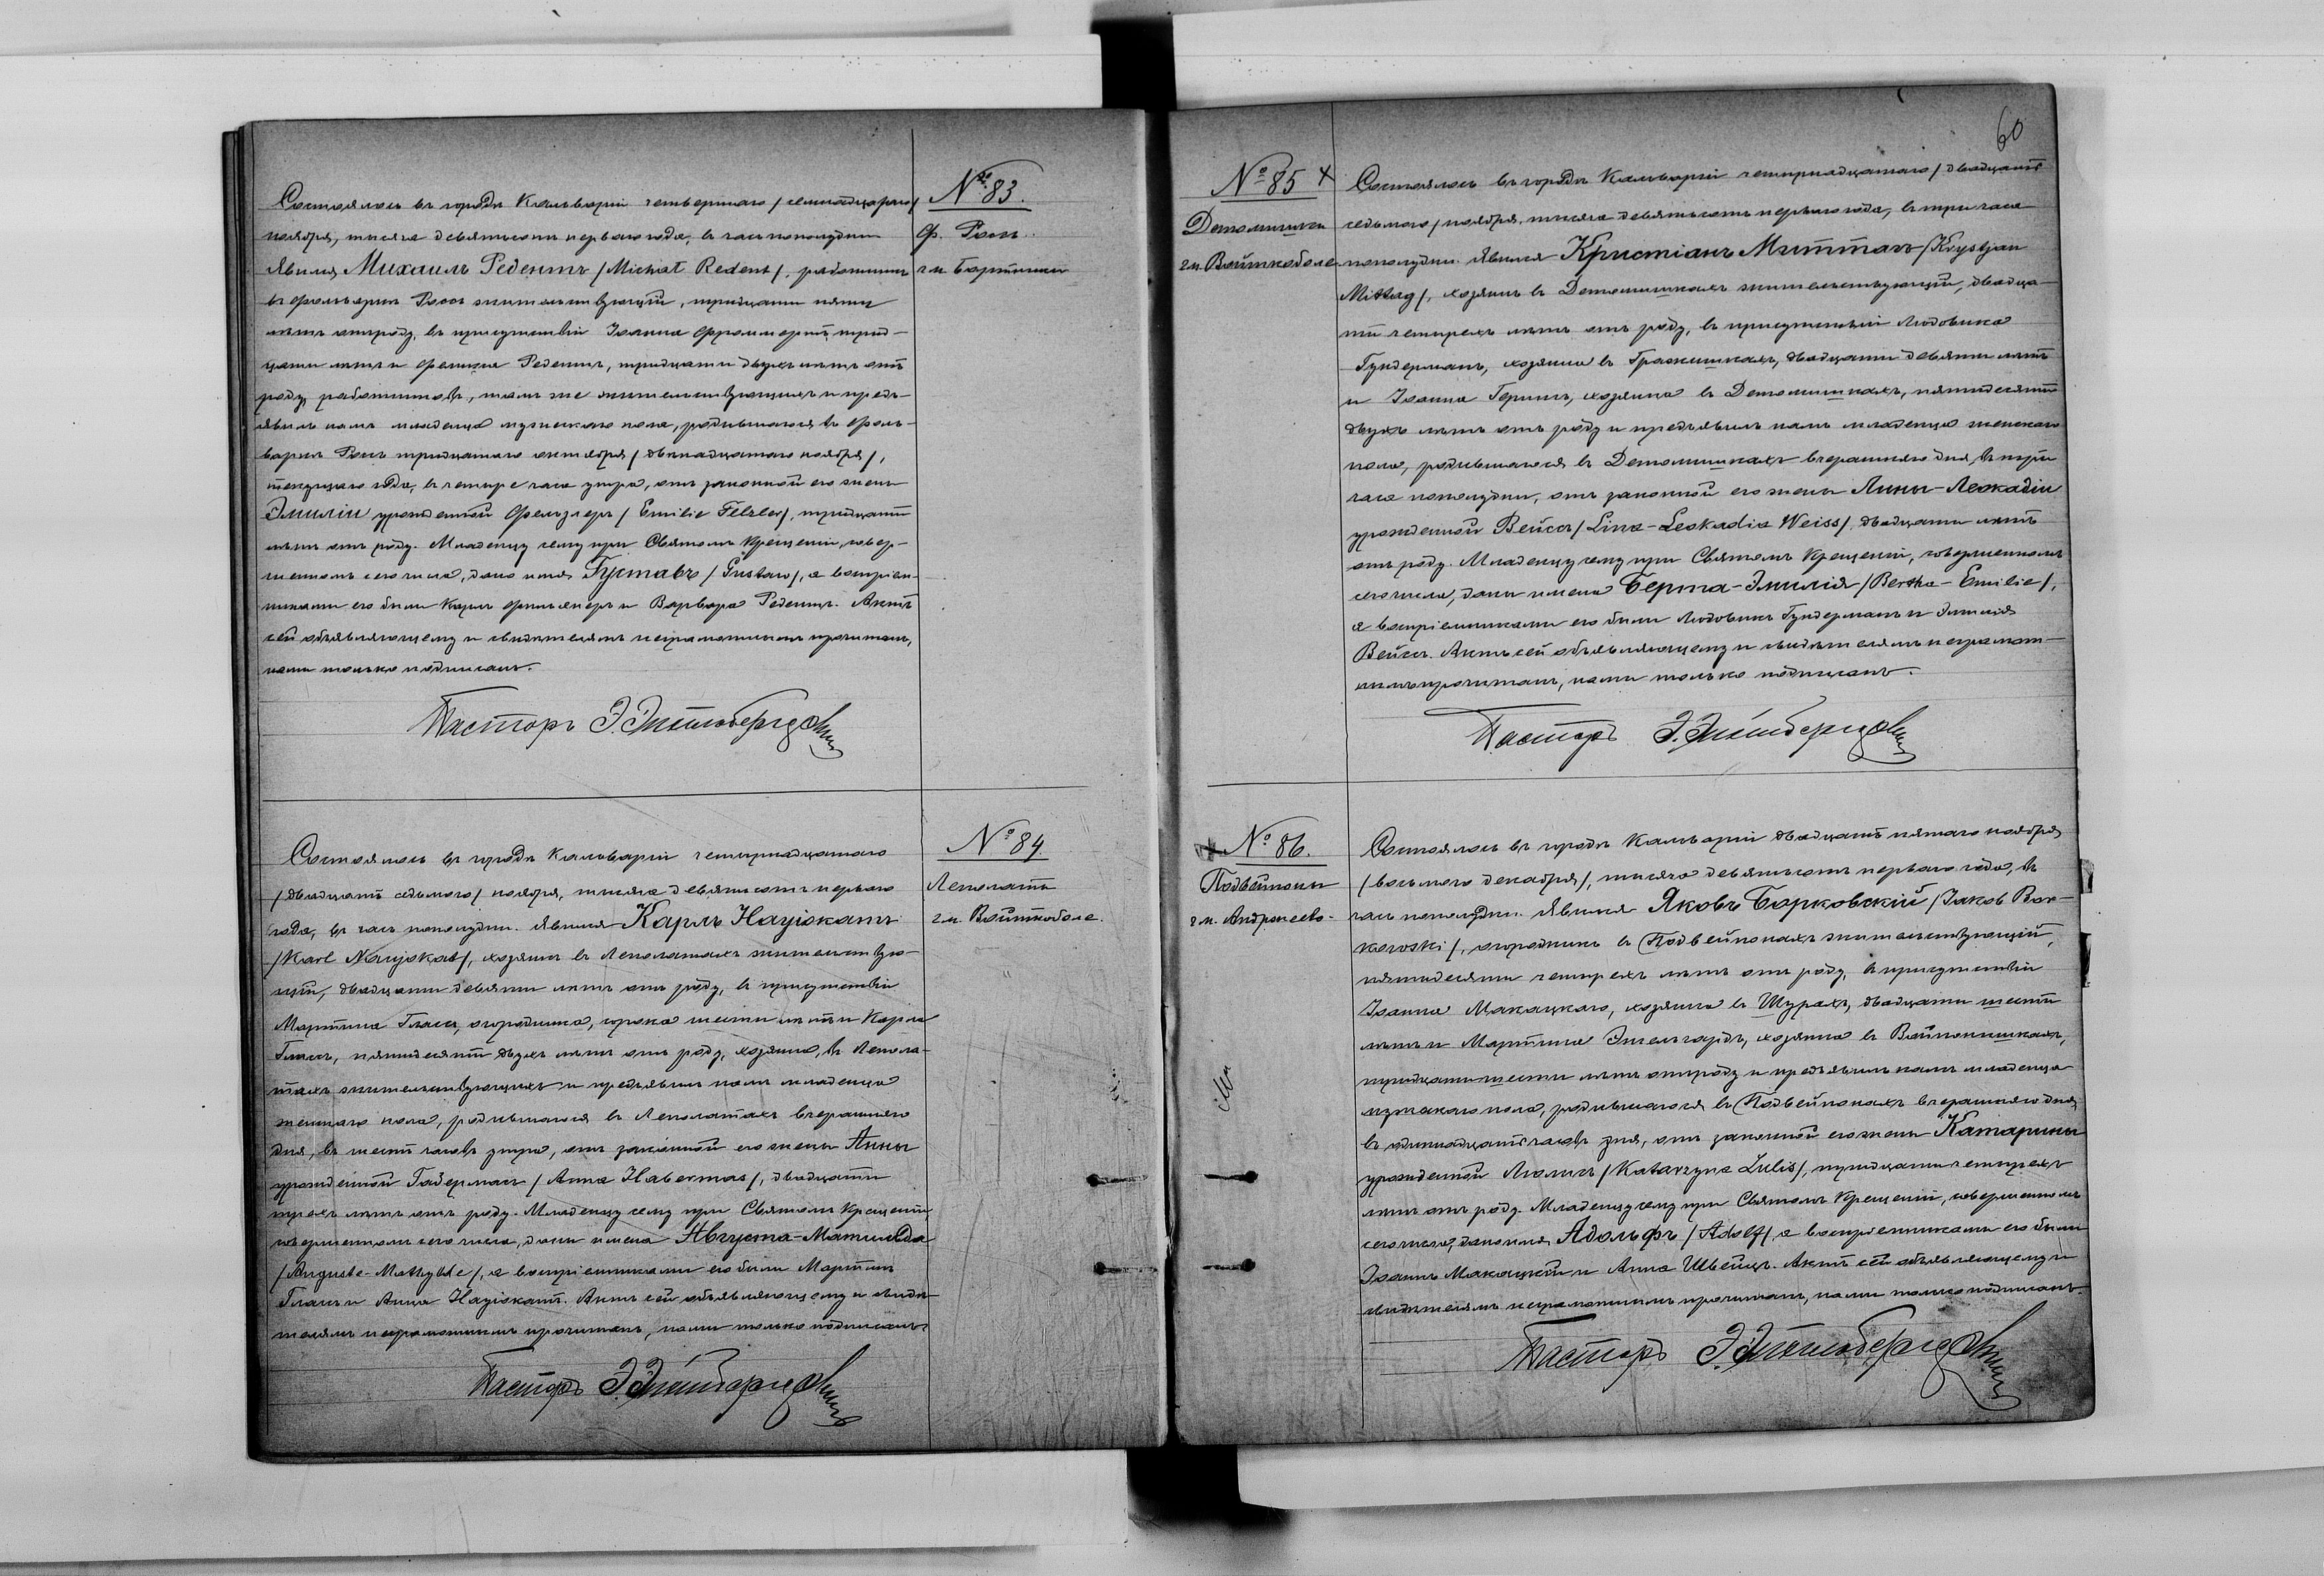 № 83.
Ф. Росъ.
гм. Бартники
Состоялось въ городѣ Кальваріи четвертаго /семнадцатаго/
ноября, тысяча девятьсотъ перваго года, въ часъ пополудни
Явился Михаилъ Редентъ /Michał Redent/, работникъ
въ фольваркѣ Росъ жительствующій, тридцати пяти
лѣтъ отъ роду, въ присутствіи Іоанна Фроммертъ, трид-
цати лѣтъ и Редентъ, тридцати двухъ лѣтъ отъ
роду, работниковъ, тамъ же жительствующихъ и предъ-
явилъ намъ младенца мужескаго пола, родившагося въ фоль-
варкѣ Росъ тридцатаго октября /двенадцатаго ноября/,
текущаго года, въ четыре часа утра, отъ законной его жены
Эмиліи урожденной Фельзлеръ /Emilie Felzler/, тридцати
лѣтъ отъ роду. Младенцу сему при Святомъ Крещеніи, совер-
шенномъ сего числа, дано имя Густавъ /Gustaw/, а воспріем-
никами его были Карлъ и Варвара Редентъ. Актъ
сей объявляющему и свидѣтелямъ неграмотнымъ прочитанъ,
нами только подписанъ.
Пасторъ Э.
№ 84
Леполаты
гм. Войткоболе.
Состоялось въ городѣ Кальваріи четырнадцатаго
/двадцать седьмого/ ноября, тысяча девятьсотъ перваго
года, въ часъ пополудни. Явился Карлъ Науіокатъ
/Karl Naujokat/, хозяинъ въ Леполатахъ жительствую-
щій, двадцати девяти лѣтъ отъ роду, въ присутствіи
Мартина Гласъ, огородника, сорока шести лѣтъ и Карла
Гласъ, пятидесяти двухъ лѣтъ отъ роду, хозяина, въ Лепола-
тахъ жительствующихъ и предъявилъ намъ младенца
женскаго пола, родившагося въ Леполатахъ вчерашняго
дня, въ шесть часовъ утра, отъ законной его жены Анны
урожденной Габермасъ /Anna Habermas/, двадцати
трехъ лѣтъ отъ роду. Младенцу сему при Святомъ Крещеніи,
совершенномъ сего числа, даны имена Августа-Матильда
/Auguste-Mathylde/, а воспріемниками его были Мартинъ
Гласъ и Анна Науіокатъ. Актъ сей объявляющему и свидѣ-
телямъ неграмотнымъ прочитанъ, нами только подписанъ.
Пасторъ Э.
60
№ 85 +
Детомишки
гм. Войткоболе
Состоялось въ городѣ Кальваріи четырнадцатаго /двадцать
седьмого/ ноября, тысяча девятьсотъ перваго года, въ три часа
пополудни. Явился Кристіанъ Миттагъ /Krystjan
Mittag/, хозяинъ въ Детомишкахъ жительствующій, двадца-
ти четырехъ лѣтъ отъ роду, въ присутствіи Людовика
Гундерманъ, хозяина въ Гражишкахъ, двадцати девяти лѣтъ
и Іоанна Герингъ, хозяина въ Детомишкахъ, пятидесяти
двухъ лѣтъ отъ роду и предъявилъ намъ младенца женскаго
пола, родившагося въ Детомишкахъ вчерашняго дня, въ три
часа пополудни, отъ законной его жены Лины-Леокадіи
урожденной Вейсъ /Lina-Leokadia Weiss/, двадцати лѣтъ
отъ роду. Младенцу сему при Святомъ Крещеніи, совершенномъ
сего числа, даны имена Берта-Эмилія /Bertha-Emilie/,
а воспріемниками его были Людовикъ Гундерманъ и Эмилія
Вейсъ. Актъ сей объявляющему и свидѣтелямъ неграмот-
нымъ прочитанъ, нами только подписанъ.
Пасторъ Э.
№ 86.
Подвейпоны
гм. Андржеево-
Состоялось въ городѣ Кальваріи двадцать пятаго ноября
/восьмого декабря/, тысяча девятьсотъ перваго года, въ
часъ пополудни. Явился Яковъ Борковскій /Jakob Bor-
kowski/, огородникъ въ Подвейпонахъ жительствующій,
пятидесяти четырехъ лѣтъ отъ роду, въ присутствіи
Іоанна Макацкаго, хозяина въ Шурахъ, двадцати шести
лѣтъ и Мартина Энгельгардъ, хозяина въ Вайпонишкахъ,
тридцати шести лѣтъ отъ роду и предъявилъ намъ младенца
мужскаго пола, родившагося въ Подвейпонахъ вчерашняго дня,
въ одиннадцать часовъ дня, отъ законной его жены Катарины
урожденной Люлисъ /Katarzyna Lulis/, тридцати четырехъ
лѣтъ отъ роду. Младенцу сему при Святомъ Крещеніи, совершенномъ
сего числа, дано имя Адольфъ /Adolf/, а воспріемниками его были
Іоаннъ Макацкій и Анна Швейцъ. Актъ сей объявляющему и
свидѣтелямъ неграмотнымъ прочитанъ, нами только подписанъ.
Пасторъ Э.